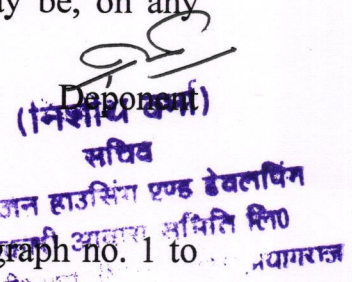 y be, on any
Deponent
(निशीथ वर्मा)
सचिव
जन हाउसिंग एण्ड डेवलपिंग
समिति लि0
graph no. 1 to